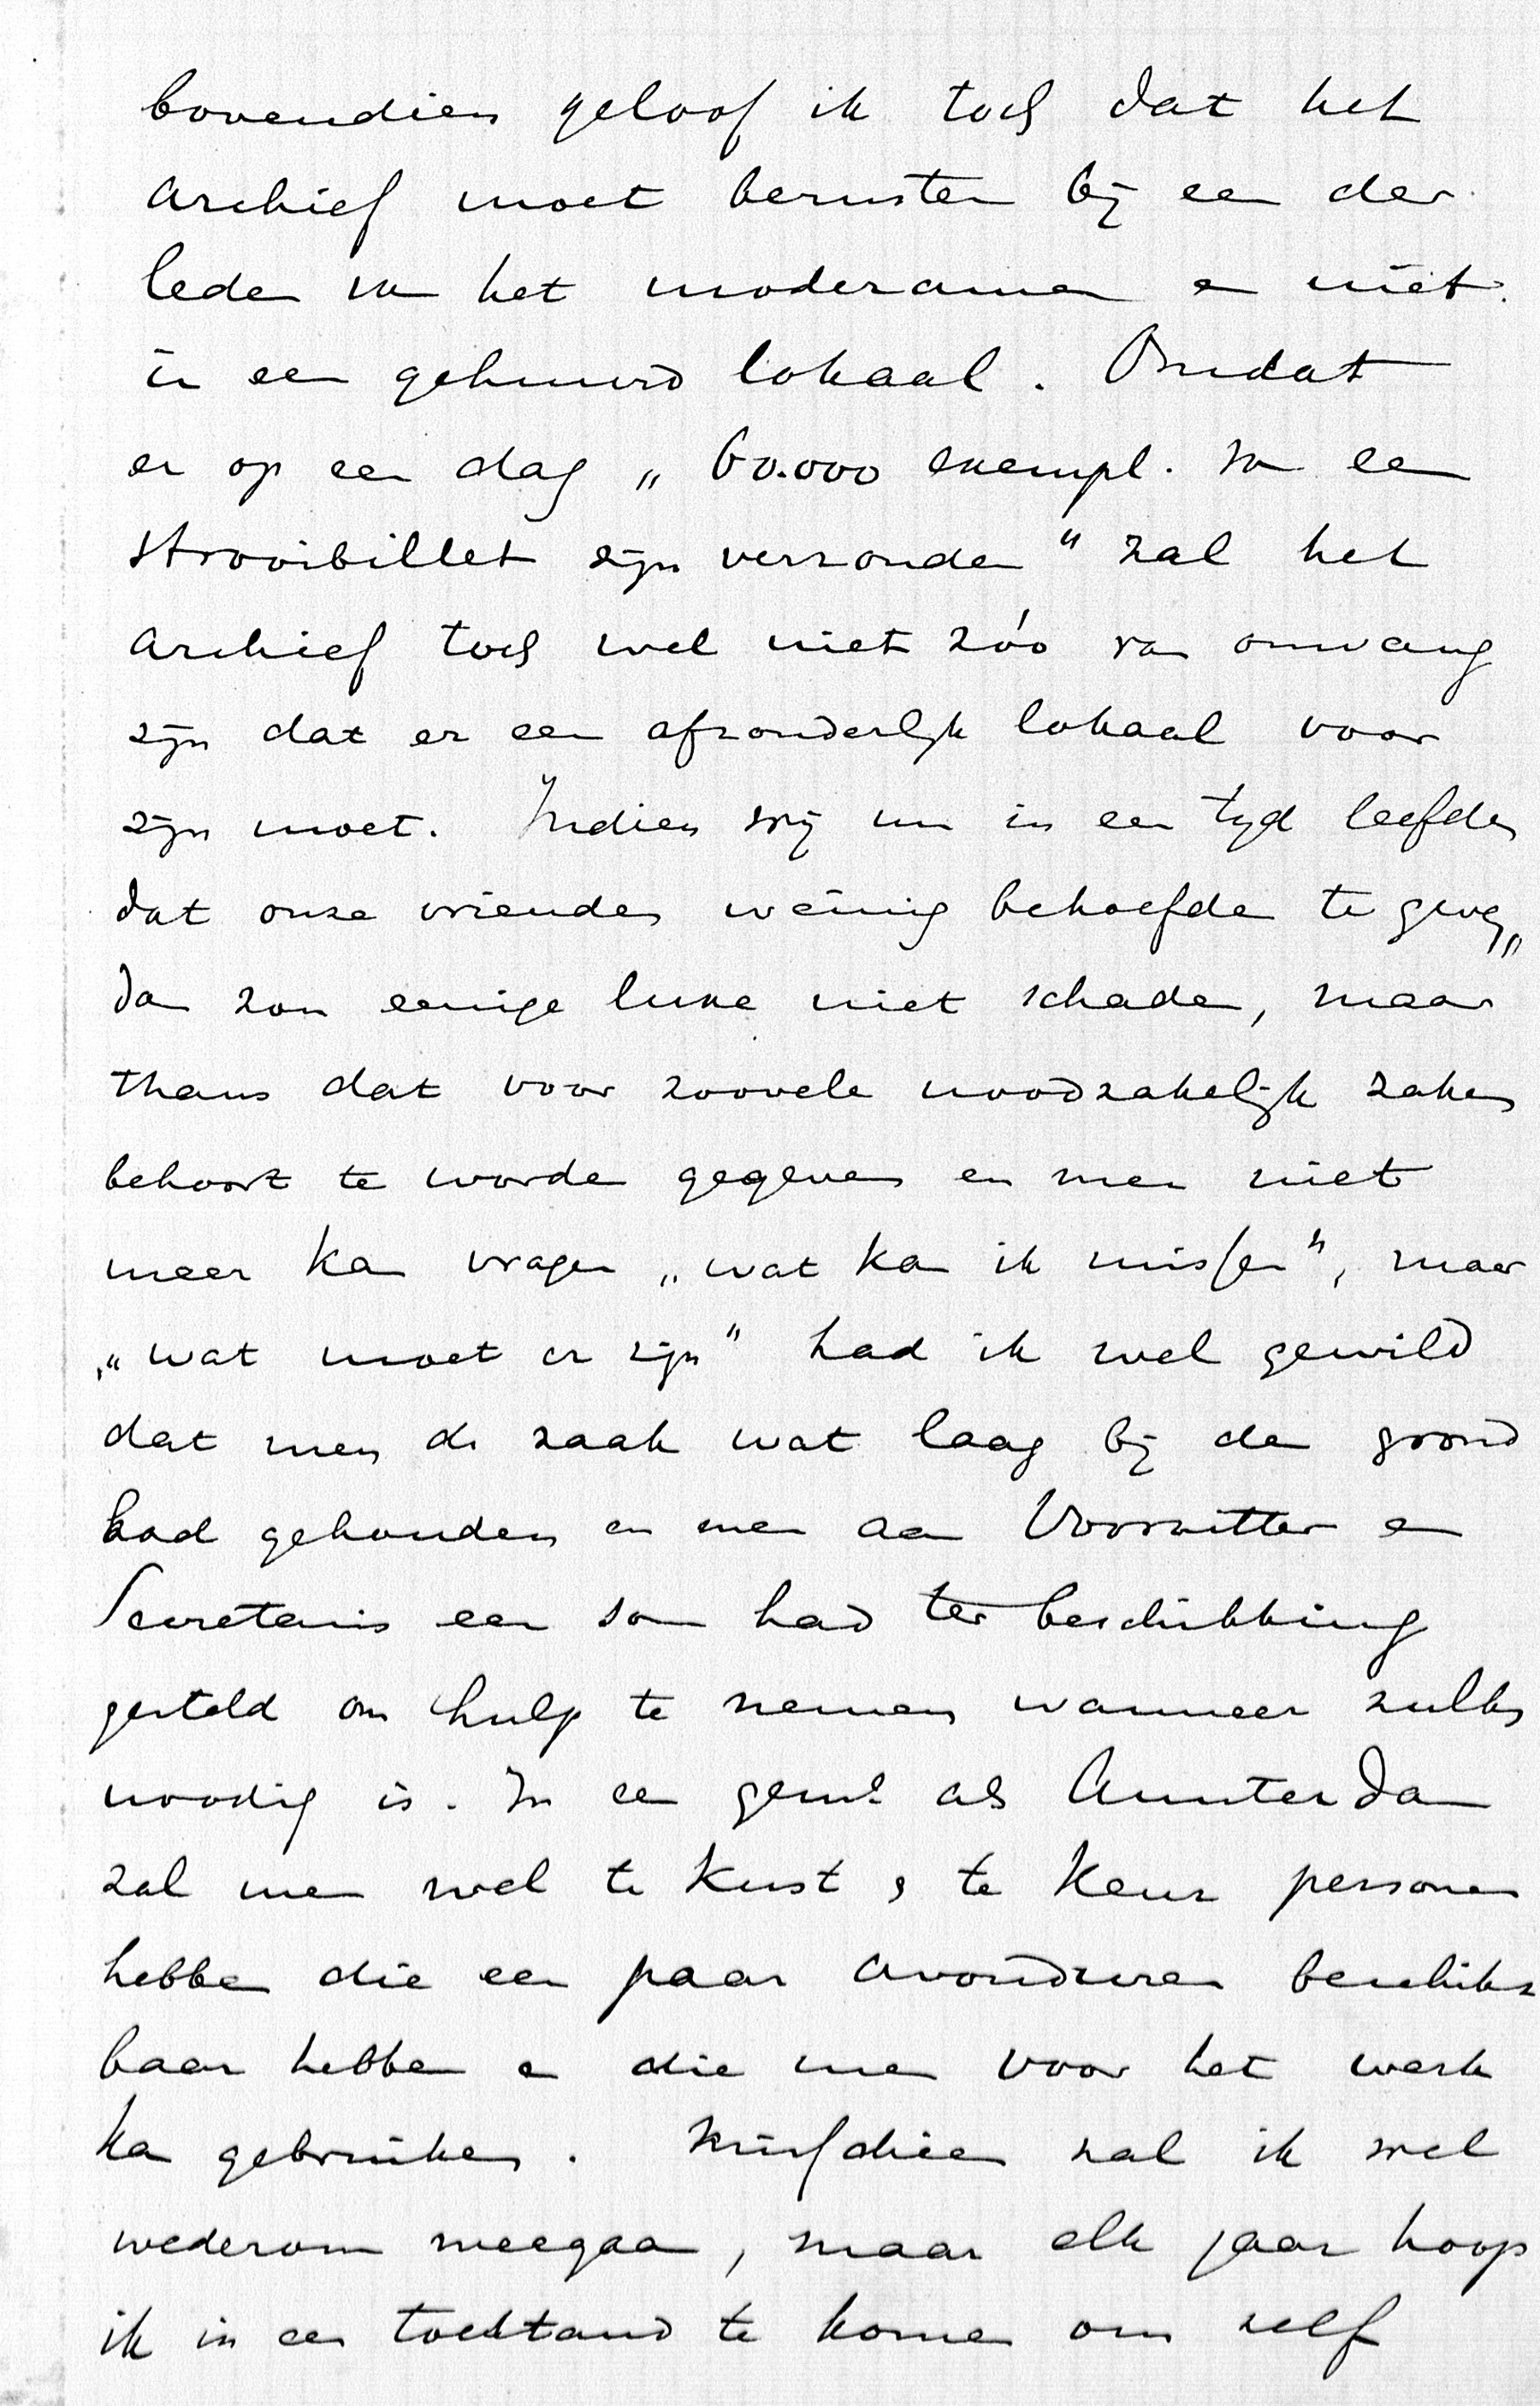 bovendien geloof ik toch dat het
archief moet berusten bij een der
leden van het moderamen en niet
in een gehuurd lokaal. Omdat
er op een dag „60.000 exempl. van een
strooibillet zijn verzonden" zal het
archief toch wel niet zóo van omvang
zijn dat er een afzonderlijk lokaal voor
zijn moet. Indien wij nu in een tijd leefden
dat onze vrienden weinig behoefden te geven
dan zou eenige luxe niet schaden, maar
thans dat voor zoovele noodzakelijk zaken
behoort te worden gegeven en men niet
meer kan vragen „wat kan ik missen", maar
„wat moet er zijn" had ik wel gewild
dat men de zaak wat laag bij den grond
had gehouden en men aan Voorzitter en
Secretaris een som had ter beschikking
gesteld om hulp te nemen wanneer zulks
noodig is. In een gemt als Amsterdam
zal men wel te kust & te keur personen
hebben die een paar avonduren beschik
baar hebben en die men voor het werk
kan gebruiken. zal ik wel
wederom meegaan, maar elk jaar hoop
ik in een toestand te komen om zelf